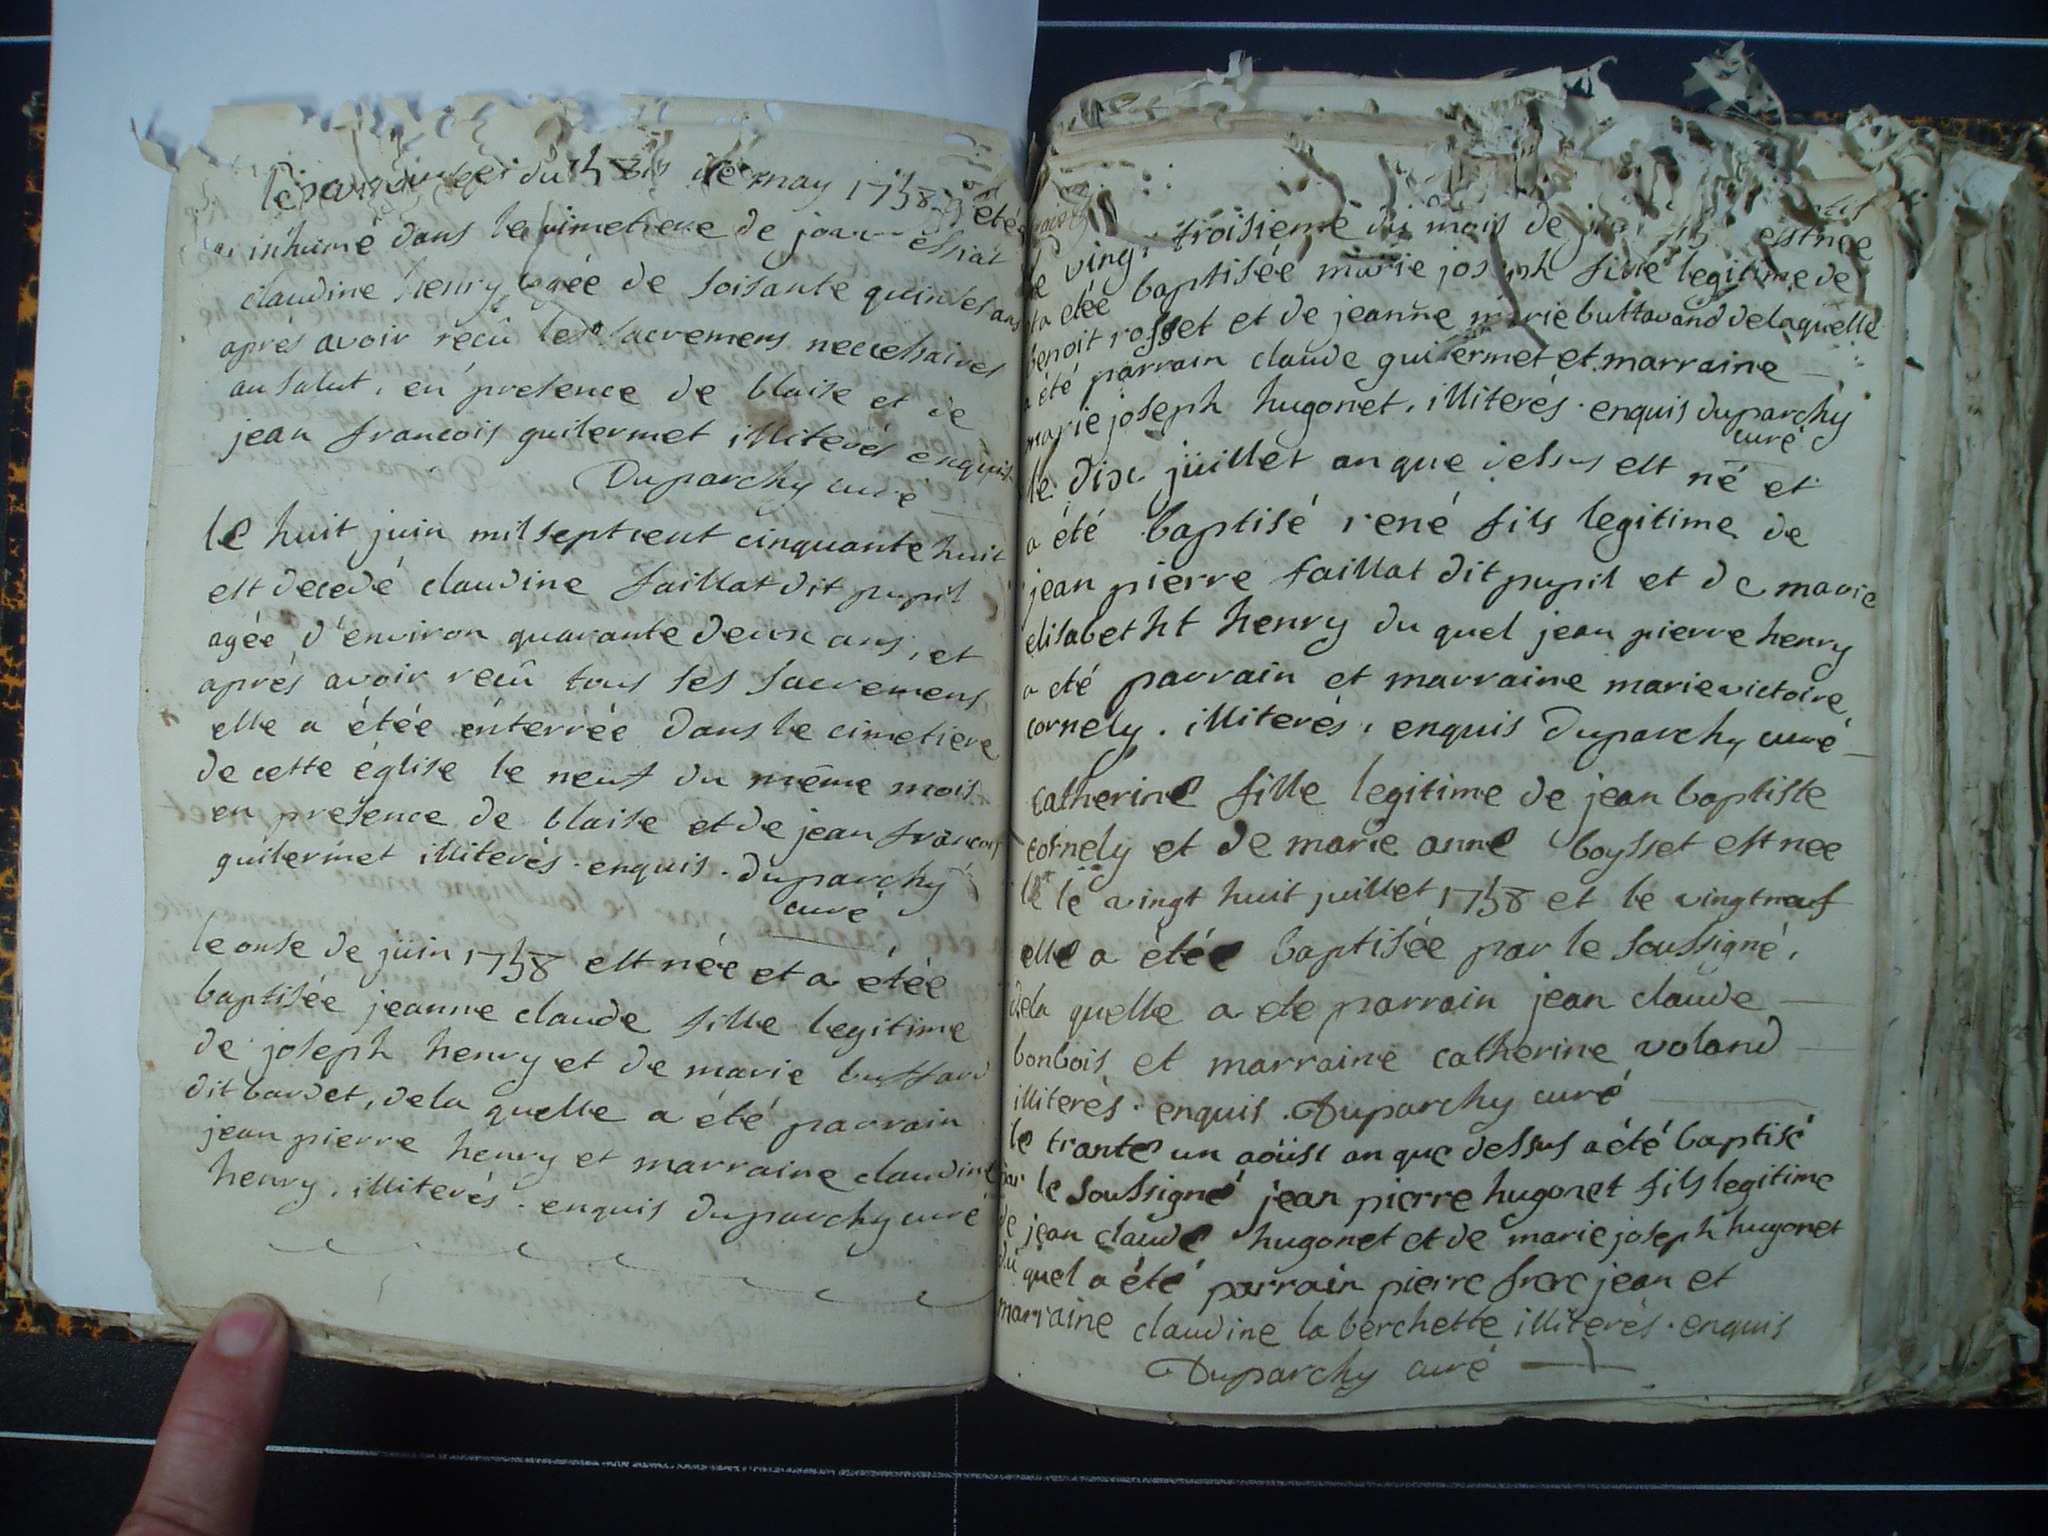 de may 1758 a été
inhumé dans le cimetiere de
claudine henry agée de soisante quinses ans
aprés avoir reçû les sacremens necessaires
au salut, en presence de blaise et de
jean francois guilermet illiterés enquis
Duparchy curé
le huit juin mil sept cent cinquante huit
est decedé claudine faillat dit pupil
agée d'environ quarante deux ans, et
aprés avoir reçû tous ses sacremens
elle a étée enterrée dans le cimetiere
de cette église le neuf du même mois
en presence de blaise et de jean francois
guilermet illiterés. enquis. duparchy
curé
le onse de juin 1758 est née et a étée
baptisée jeanne claude fille legitime
de joseph henry et de marie
dit bardet, de la quelle a été parrain
jean pierre henry et marraine claudine
henry, illiterés. enquis duparchy curé
le vingt troisieme du mois de est née
et a étée baptisée marie joseph fille legitime de
benoit rosset et de jeanne marie buttavand de laquelle
a été parrain claude guilermet et marraine
marie joseph hugonet, illiterés. enquis duparchy
curé
le dix juillet an que dessus est né et
a été baptisé rené fils legitime de
jean pierre faillat dit pupil et de marie
elisabetht henry du quel jean pierre henry
a eté parrain et marraine marie victoire
cornely. illiterés, enquis Duparchy curé
catherine fille legitime de jean baptiste
cornely et de marie anne boysset est nee
le vingt huit juillet 1758 et le vingt neuf
elle a étée baptisée par le soussigné,
de la quelle a ete parrain jean claude
bonbois et marraine catherine voland
illiterés. enquis. Duparchy curé
le trante un aöust an que dessus a été baptisé
par le soussigné jean pierre hugonet fils legitime
de jean claude hugonet et de marie joseph hugonet
du quel a été parrain pierre frere jean et
marraine claudine la berchette illiterés. enquis
Duparchy curé